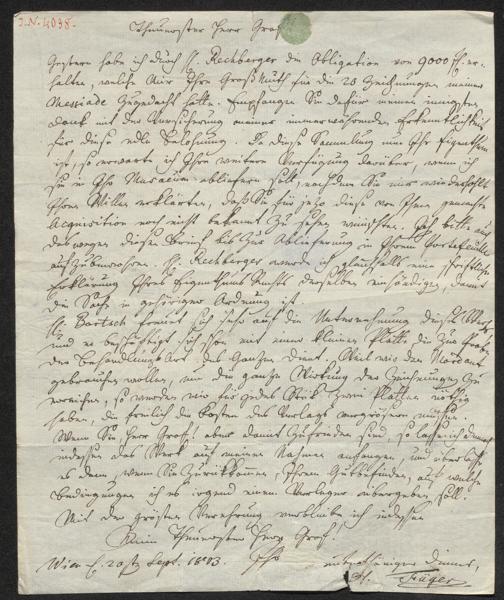 I.N. 4038.
Theuerster Herr Graf
Gestern habe ich durch H. Rechberger die Obligation von 9000 fl. er-
halten, welche mir Ihre Großmuth für die 20 Zeichnungen meiner
Messiade zugedacht hatte. Empfangen Sie dafür meinen innigsten
Dank mit der Versicherung meiner immerwährenden Erkentlichkeit
für diese edle Belohnung. Da diese Sammlung nun Ihr Eigenthum
ist, so erwarte ich Ihre weitere Verfügung darüber, wenn ich
sie in Ihr Museum abliefern soll, nachdem Sie mir wiederhohlt
Ihren Willen erklärten, daß Sie für jezo diese von Ihnen gemachte
Acquisition noch nicht bekannt zu sehen wünschten. Ich bitte auch
deswegen diesen Brief bis zur Ablieferung in Ihrem Portefeuille
aufzubewahren. H. Rechberger werde ich gleichfalls eine schriftliche
Erklärung Ihres Eigenthums Rechts derselben einhändigen, damit
die Sache in gehöriger Ordnung ist.
H. Bartsch freuet sich sehr auf die Unternehmung dieses Werks
und er beschäftigt sich schon mit einer kleinen Platte, die zur Probe
der Behandlungs Art des Ganzen dient. Weil wir den
gebrauchen wollen, um die ganze Wirkung der Zeichnungen zu
erreichen, so werden wir für jedes Stük zwei Platten nöthig
haben, die freilich die Kosten des Verlags vergrössern müssen.
Wenn Sie, Herr Graf, aber damit zufrieden sind, so lasse ich
indessen das Werk auf meinen Nahmen anfangen, und überlasse
es dann, wenn Sie zurükkommen, Ihrem Gutbefinden, auf welche
Bedingungen ich es irgend einem Verleger übergeben soll.
Mit der grösten Verehrung verbleibe ich indessen
Mein Theuerster Herr Graf.
Wien d. 20st. Sept. 1803. Ihr unterthäniger Diener,
H. Füger